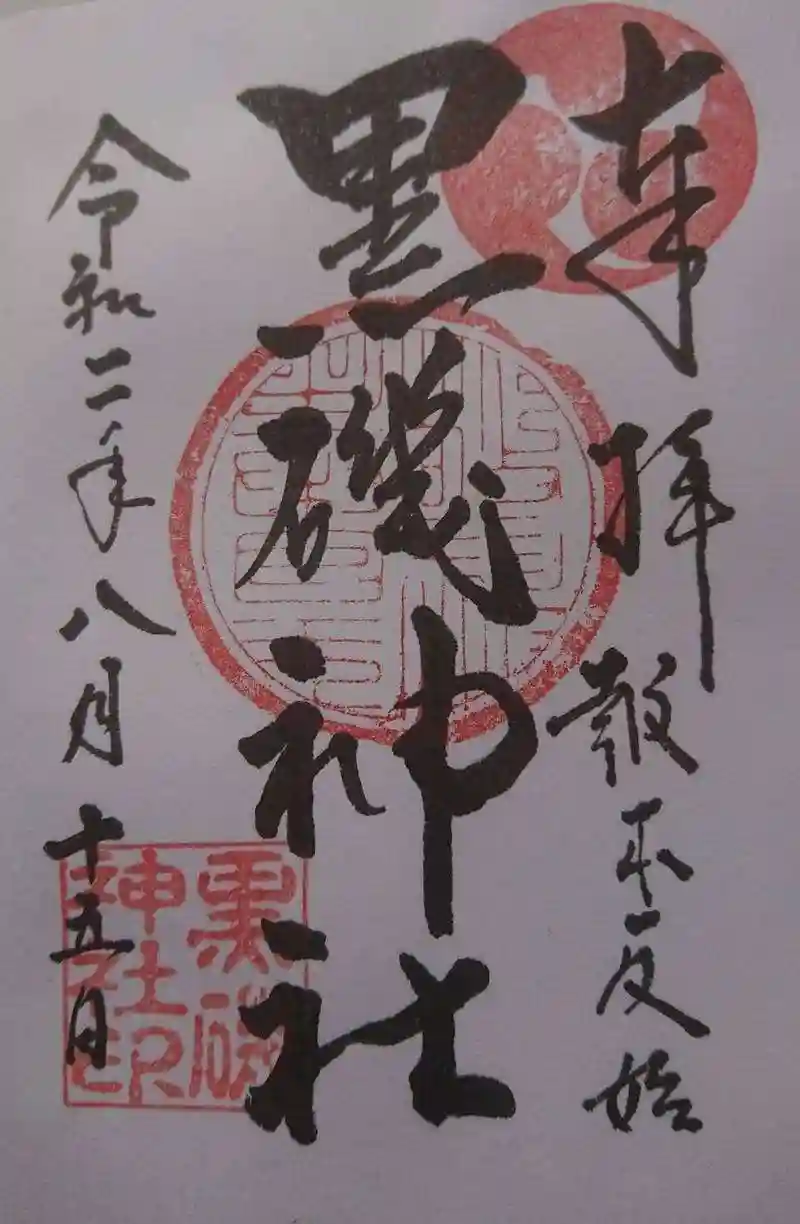 奉拝 報本反始
黒磯神社
令和二年八月十五日
黒磯
神社印